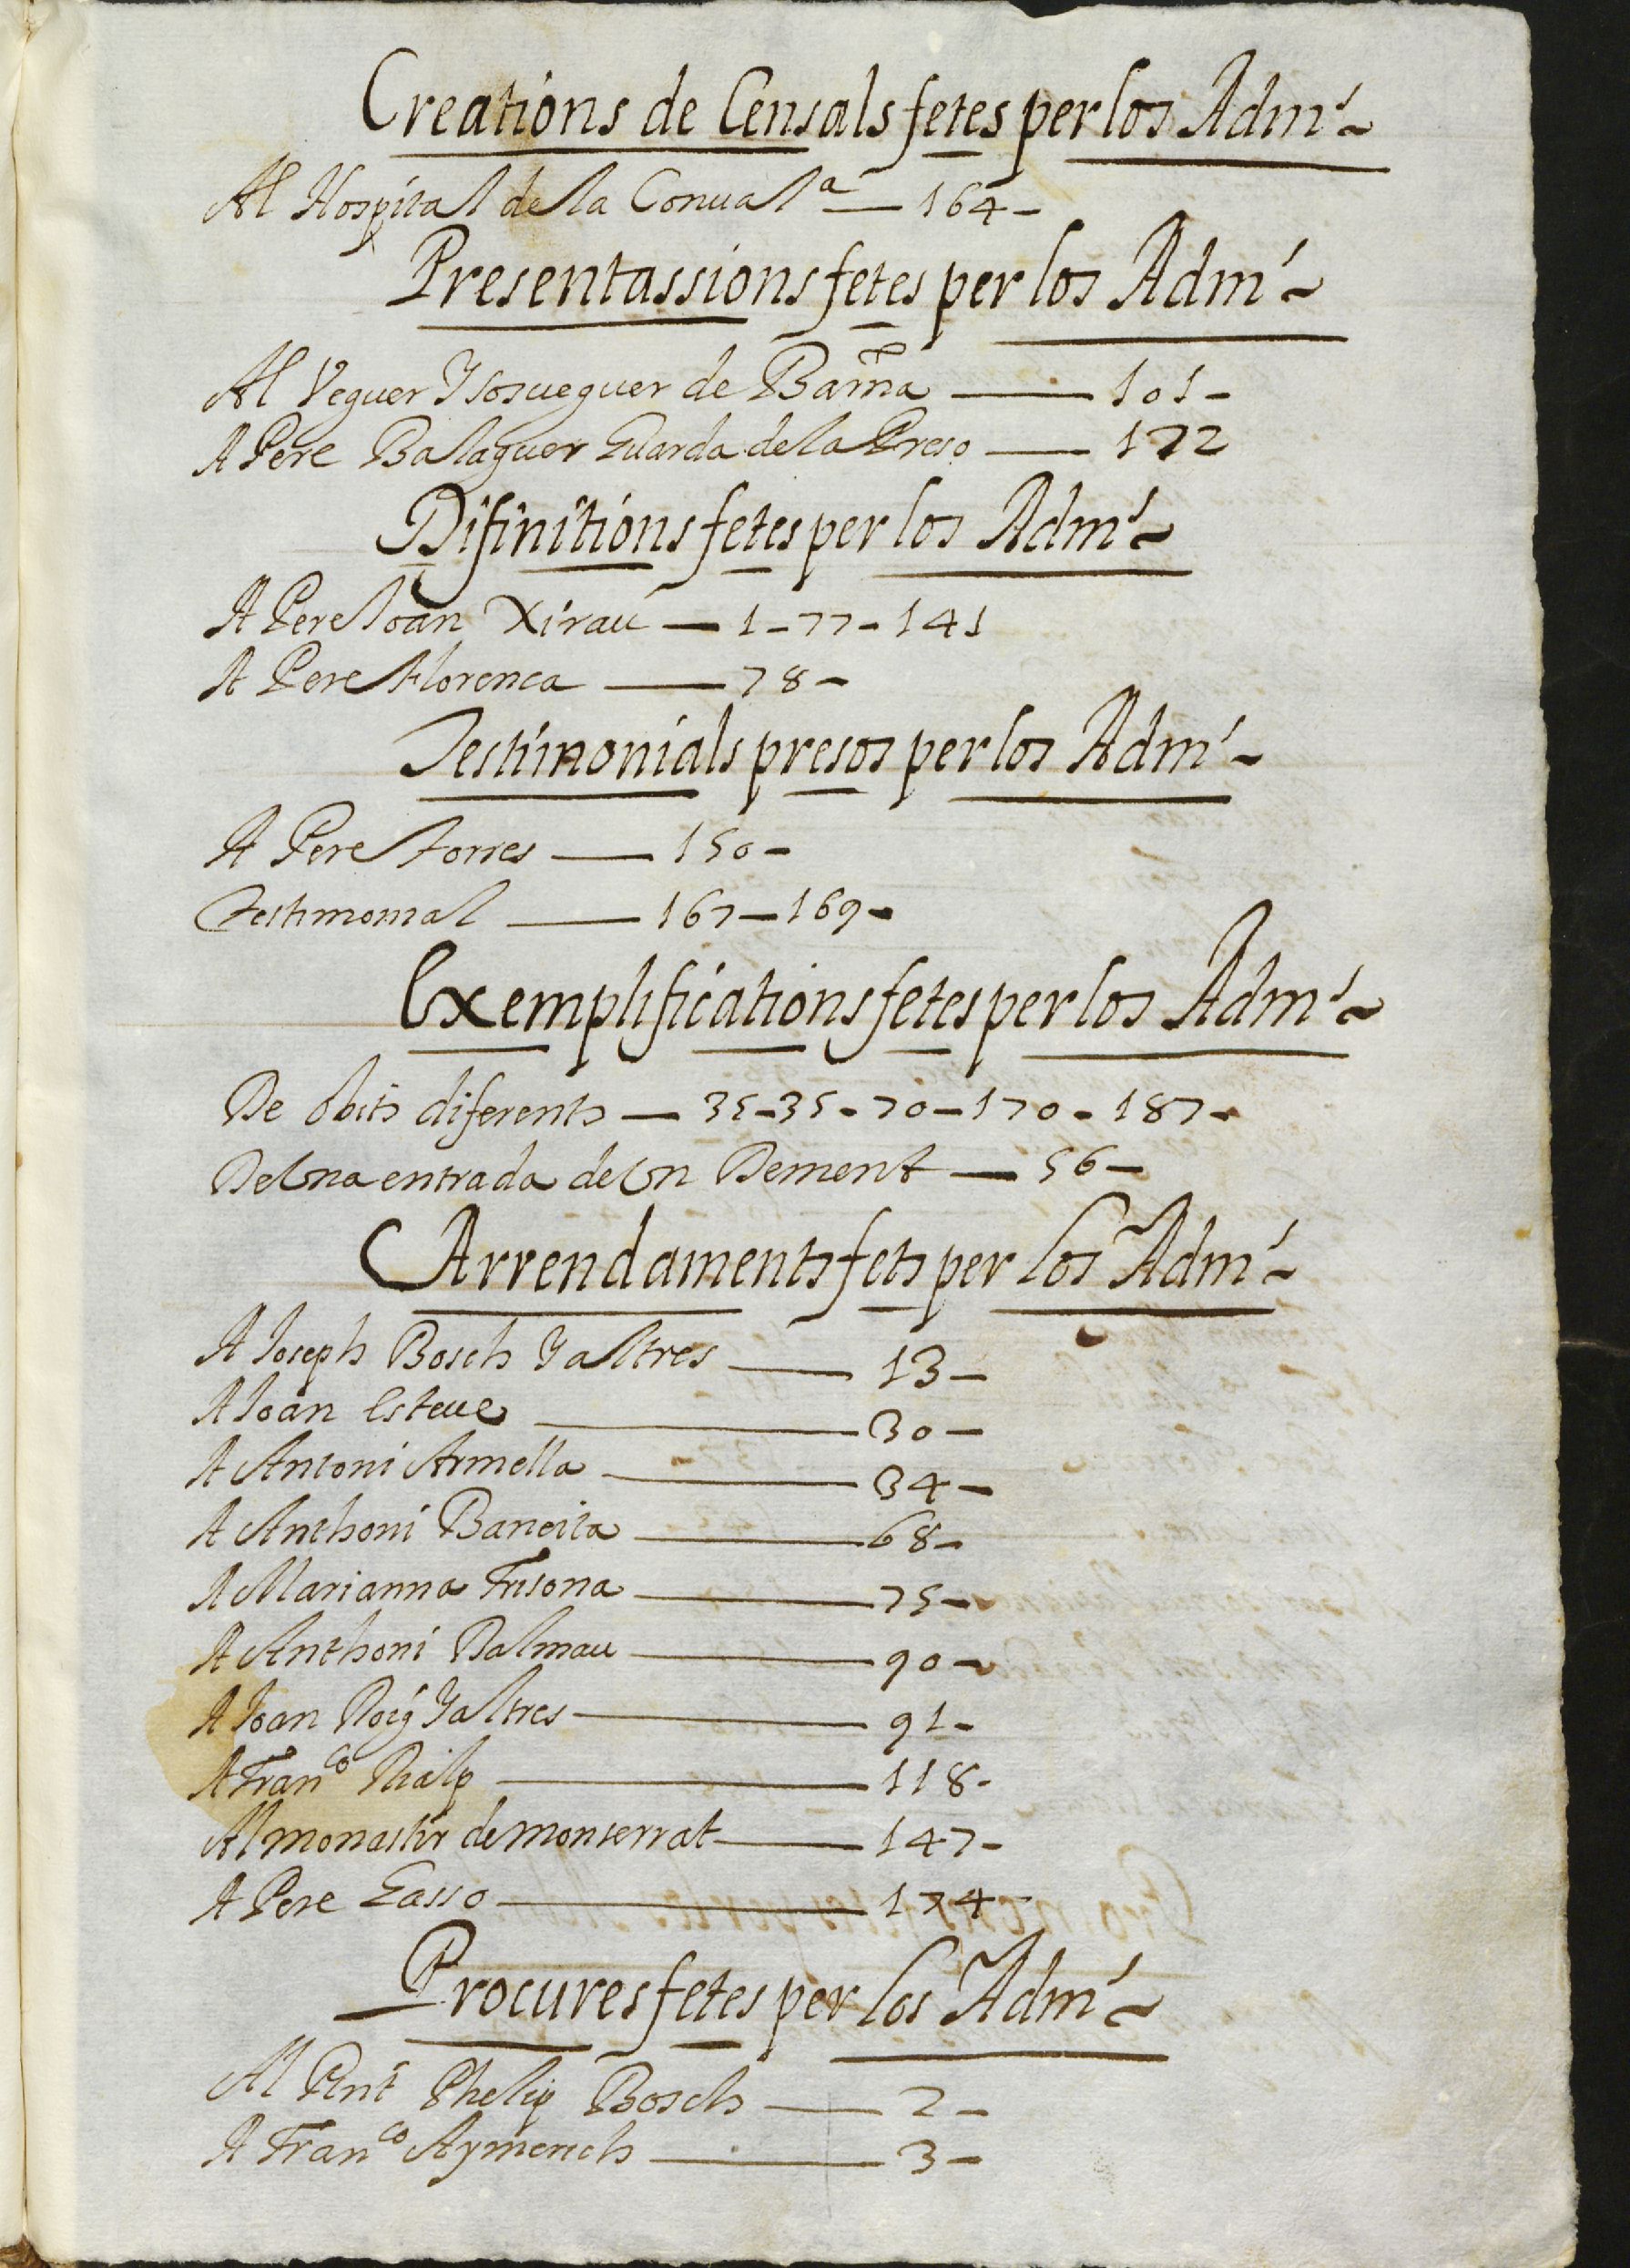 Creations de Censals fetes per los Adm.ˢ
Al Hospital de la Conualᵃ — 164 -
Presentassions fetes per los Adm.ˢ
Al Veguer Y sosueguer de Barna — 101 -
A Pere Balaguer Guarda de la Preso — 172
Difinitions fetes per los Adm.ˢ
A Pere Joan Xirau — 1 - 77 - 141
A Pere Florença — 78 -
Testimonials presos per los Adm.ˢ
A Pere torres — 150 -
testimonial — 167 - 169 -
Exemplifications fetes per los Adm.ˢ
De obits diferents — 35 - 35 - 70 - 170 - 187 -
De Una entrada de Un Dement — 56 -
Arrendaments fets per los Adm.ˢ
A Joseph Bosch Y altres — 13 -
A Joan Esteue — 30 -
A Antoni Armella — 34 -
A Anthoni — 68 -
A Marianna Frisona — 75 -
A Anthoni Dalmau — 90 -
A Joan Roig Y altres — 91 -
A Franᶜᵒ Rialp — 118 -
Al monastir de monserrat — 147 -
A Pere Gasso — 174 -
Procures fetes per los Adm.ˢ
Al Phelip Bosch — 2 -
A Franᶜᵒ Aymerich — 3 -